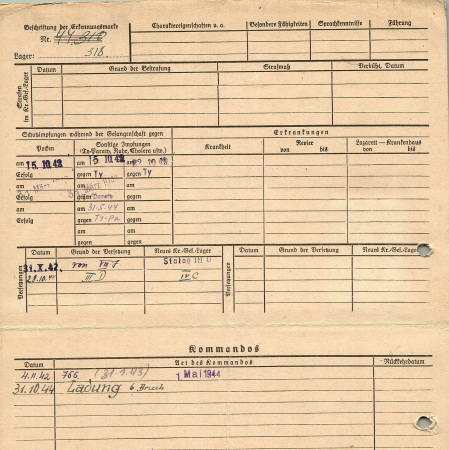 Beschriftung der Erkennungsmarke
Nr.
Lager: 318.
Charaktereigenschaften u. a.
Besondere Fähigkeiten
Sprachkenntnisse
Führung
Strafen im Kr.-Gef.-Lager
Datum
Grund der Bestrafung
Strafmaß
Verbüßt, Datum
Schutzimpfungen während der Gefangenschaft gegen
Erkrankungen
Pocken
Sonstige Impfungen
(Ty-Paraty, Ruhr, Cholera usw.)
Krankheit
Revier
von bis
Lazarett — Krankenhaus
von bis
am 15.10.42 am 15 10.42 am 10 42
Erfolg gegen Ty gegen Ty
am am am
Erfolg gegen gegen
am am 31.5.44 am
Erfolg gegen Ty-Pa. gegen
am am
gegen gegen
Versetzungen
Datum
Grund der Versetzung
Neues Kr.-Gef.-Lager
Versetzungen
Datum
Grund der Versetzung
Neues Kr.-Gef.-Lager
31.X.42. von Stalag III D
III D IV C
Kommandos
Datum
Art des Kommandos
Rückkehrdatum
4.11.42 766 (31.1.43) 1. Mai 1944
31.10.44 Ladung b. Brüx